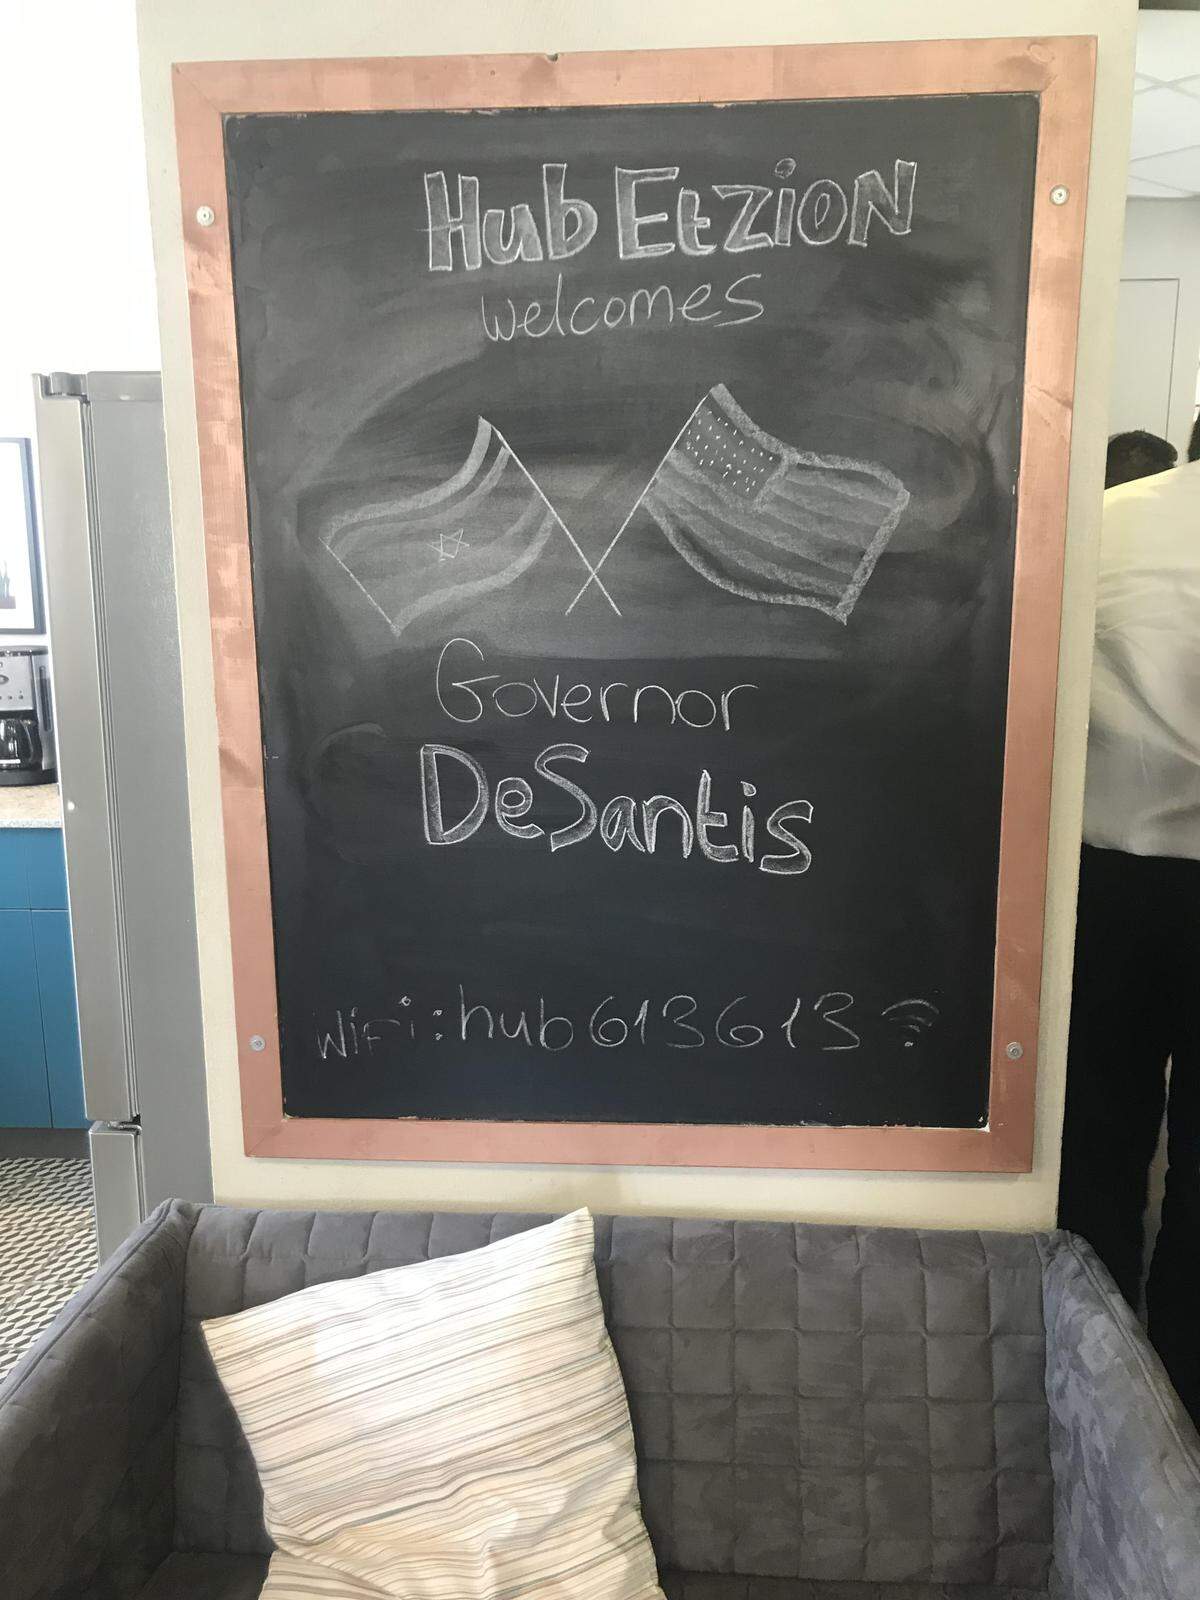 Hub Etzion
welcomes
Governor
DeSantis
WiFi: hub613613